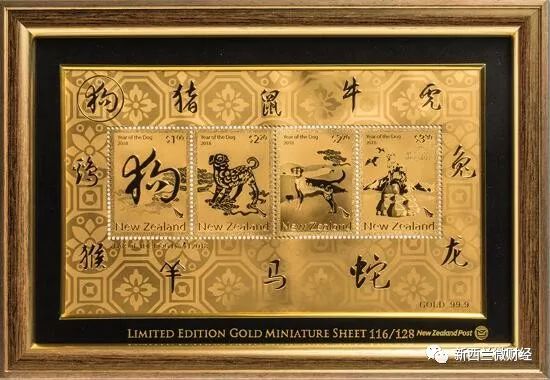 狗 猪 鼠 牛 虎
Year of the Dog
2018
Year of the Dog
2018
Year of the Dog
2018
Year of the Dog
2018
狗
New Zealand New Zealand New Zealand New Zealand
鸡 兔
猴 羊 马 蛇 龙
GOLD 99.9
LIMITED EDITION GOLD MINIATURE SHEET 116/128 New Zealand Post
新西兰微财经